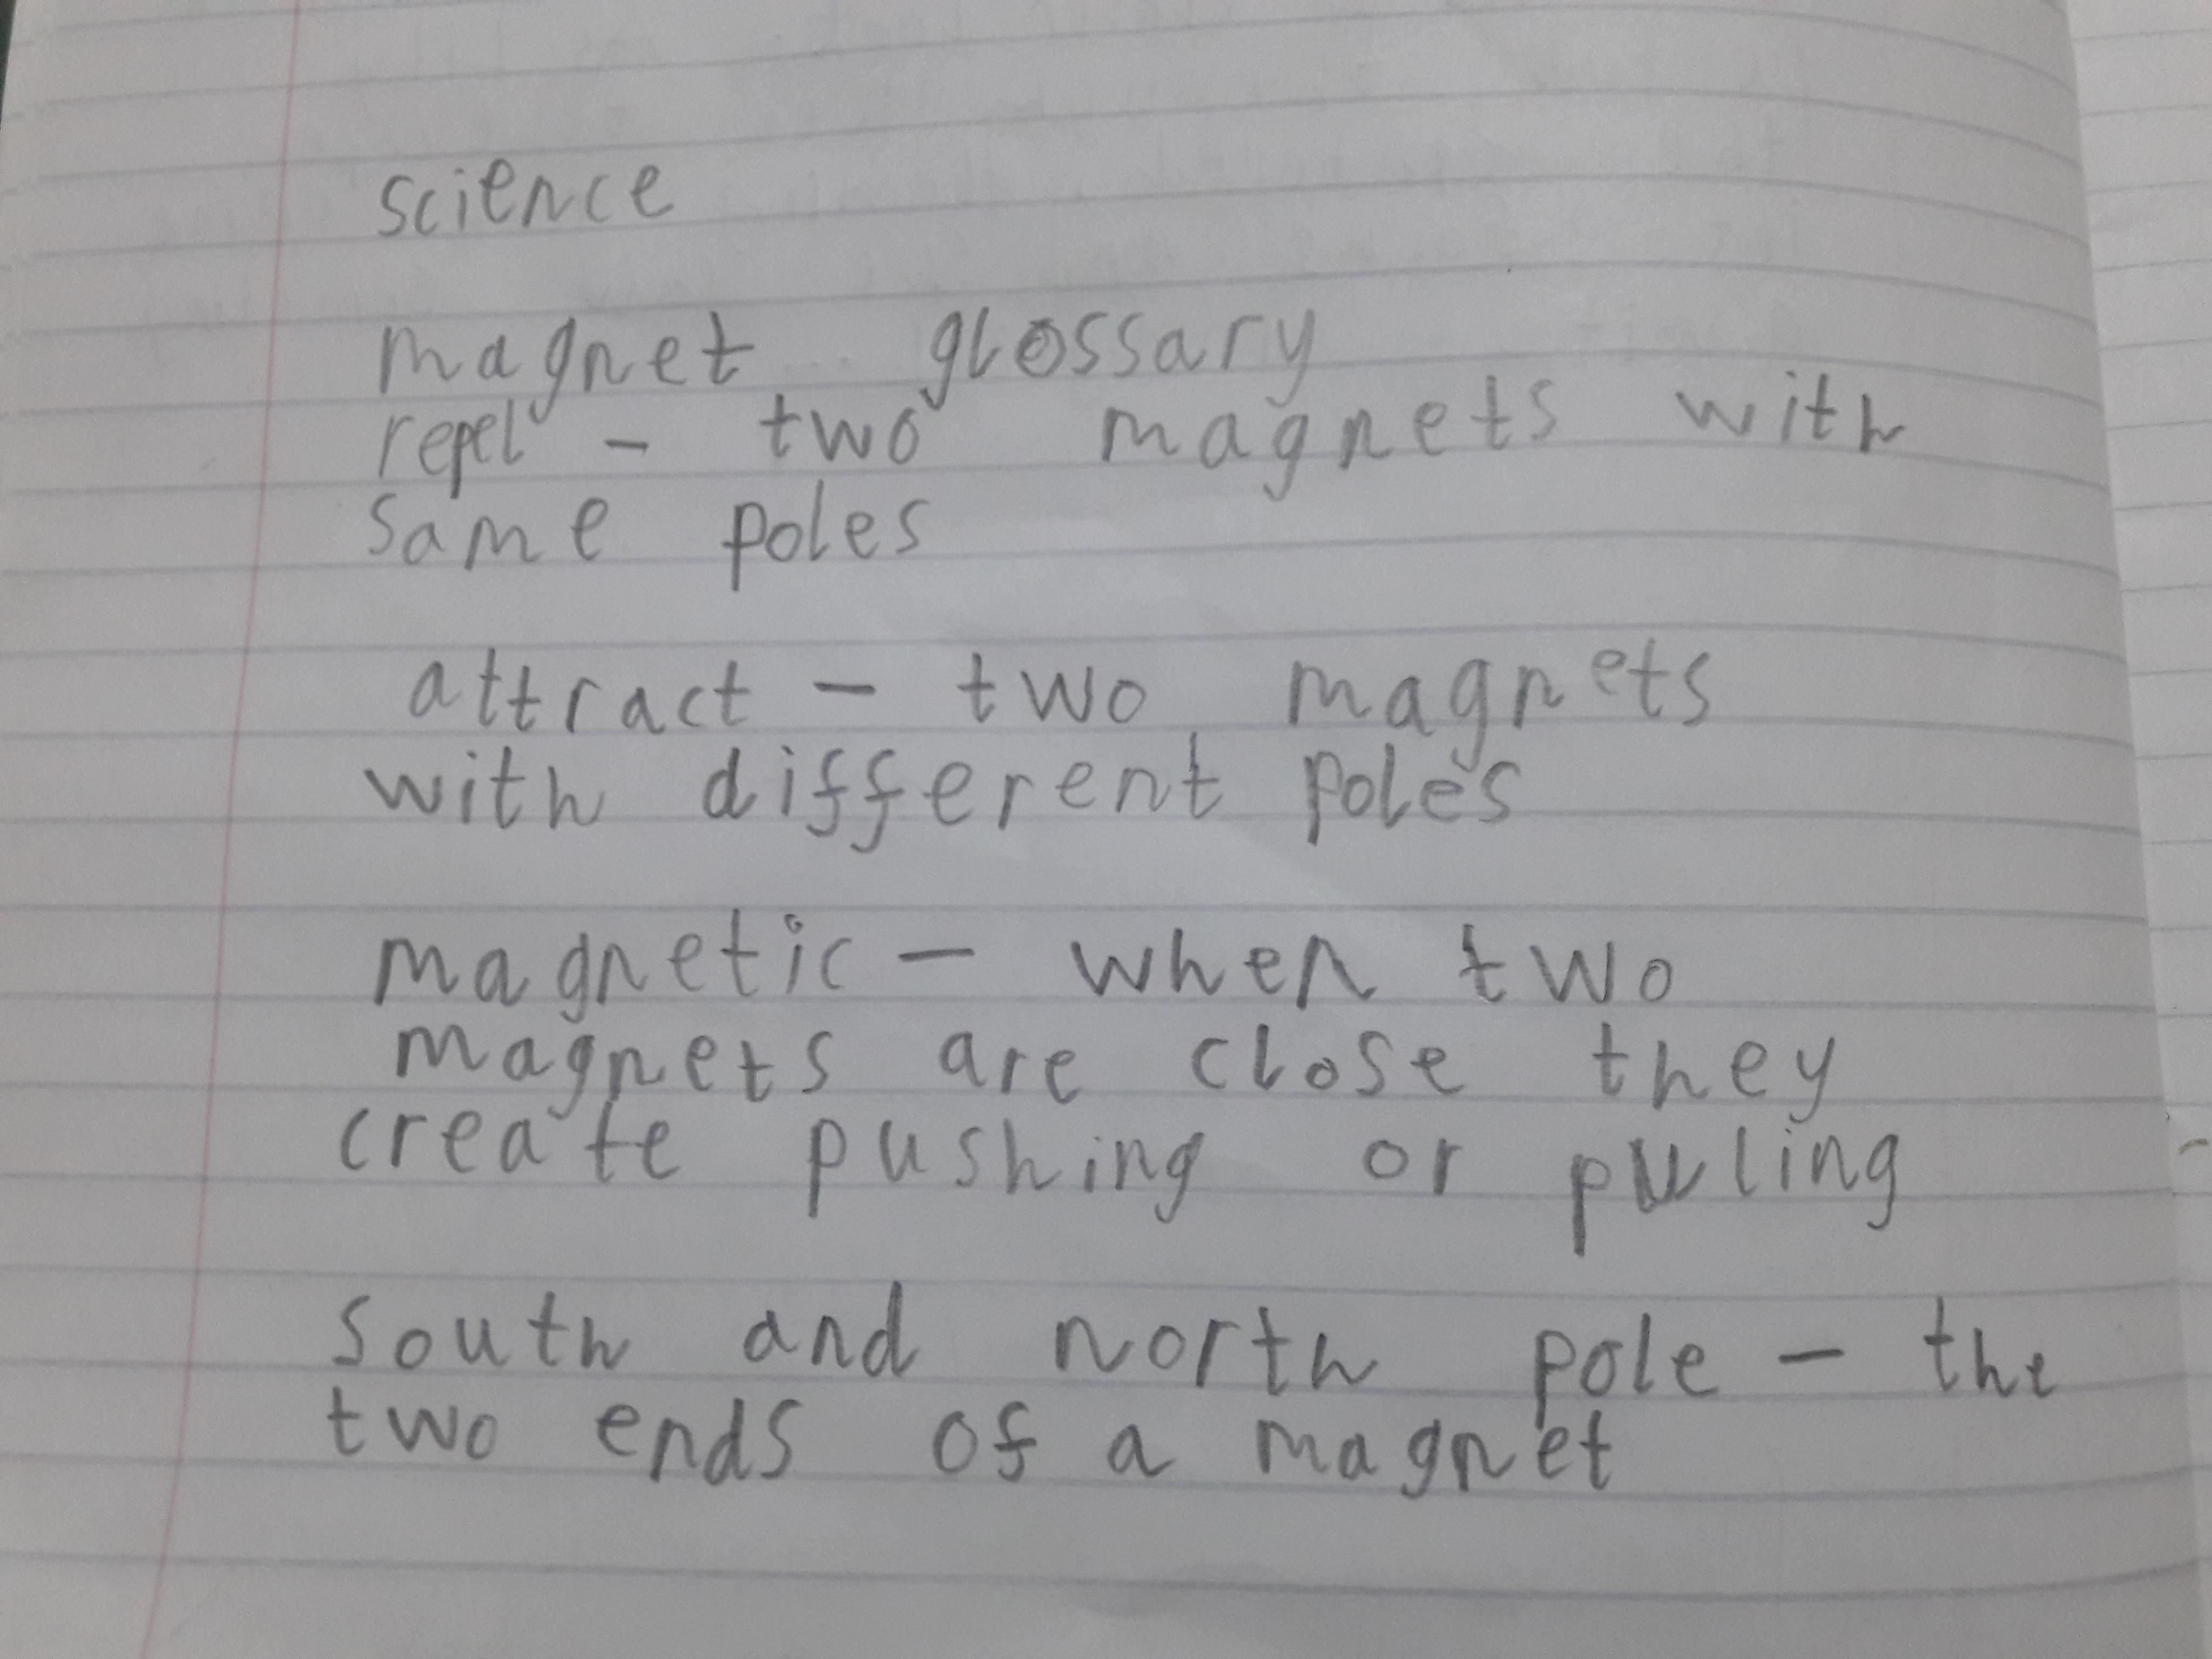 science
magnet glossary
repel - two magnets with
same poles
attract - two magnets
with different poles
magnetic - when two
magnets are close they
create pushing or puling
south and north pole - the
two ends of a magnet